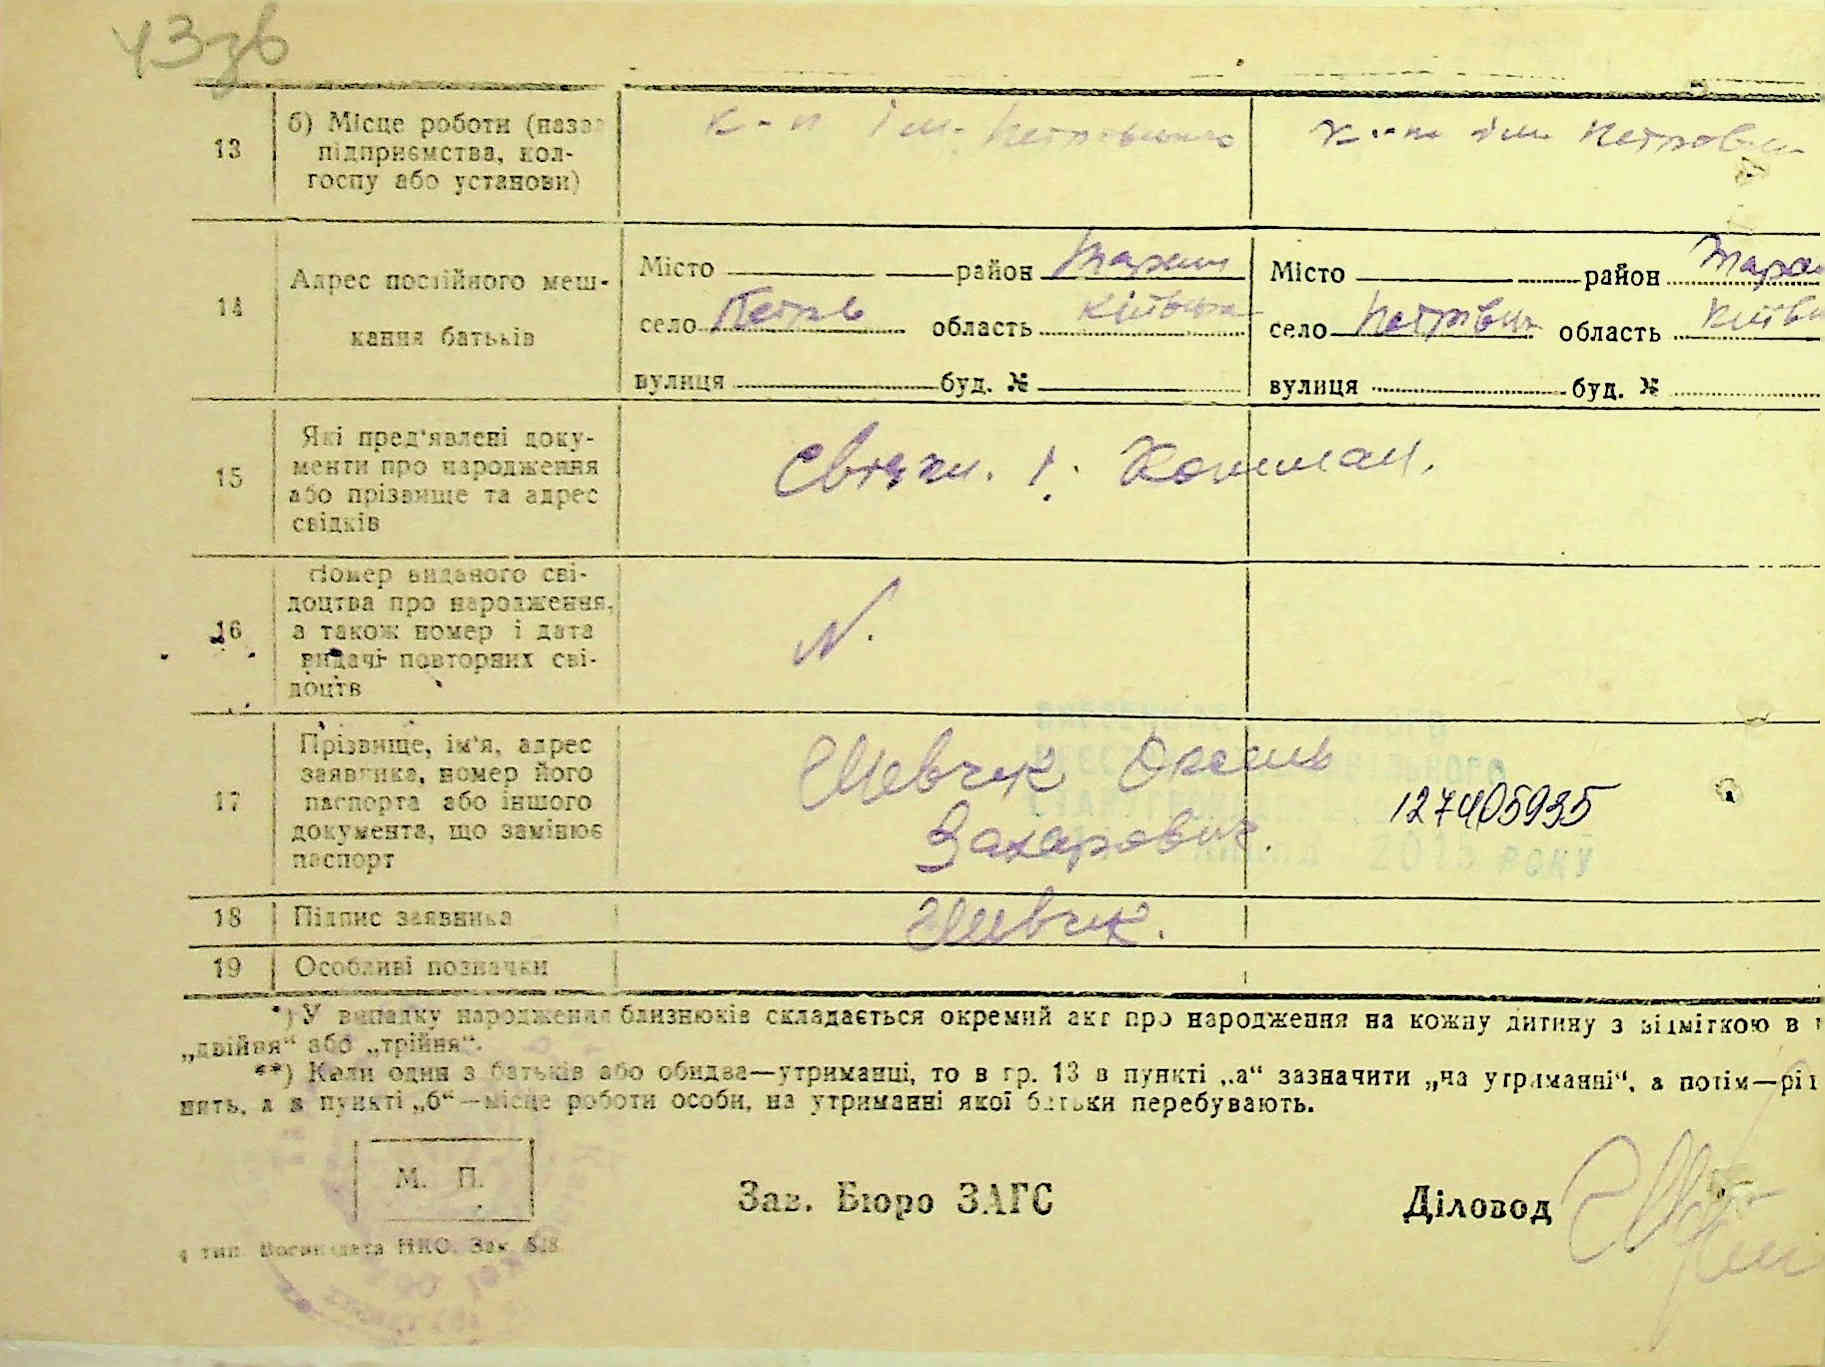 43зв
13
б) Місце роботи (назва
підприємства, кол-
госпу або установи)
к-п ім. Петровського
к-п ім Петровськ
14
Адрес постійного меш-
кання батьків
Місто район Таращ
село Петрів область Київська
вулиця буд. №
Місто район Тара
село Петрівка область Київсь
вулиця буд. №
15
Які пред'явлені доку-
менти про народження
або прізвище та адрес
свідків
16
Номер виданого сві-
доцтва про народження,
а також номер і дата
видачі повторних сві-
доцтв
N.
17
Прізвище, ім'я, адрес
заявника, номер його
паспорта або іншого
документа, що замінює
паспорт
Шевчук
Захарович.
127405935
2013 РОКУ
18
Підпис заявника
Шевчук.
19
Особливі позначки
*) У випадку народження близнюків складається окремий акт про народження на кожну дитину з відміткою в
„двійня“ або „трійня“.
**) Коли один з батьків або обидва—утриманці, то в гр. 13 в пункті „а“ зазначити „на утриманні“, а потім—рід
нять, а в пункті „б“—місце роботи особи, на утриманні якої батьки перебувають.
М. П.
Зав. Бюро ЗАГС
Діловод
4 тип. Воениздата НКО. Зак. 828